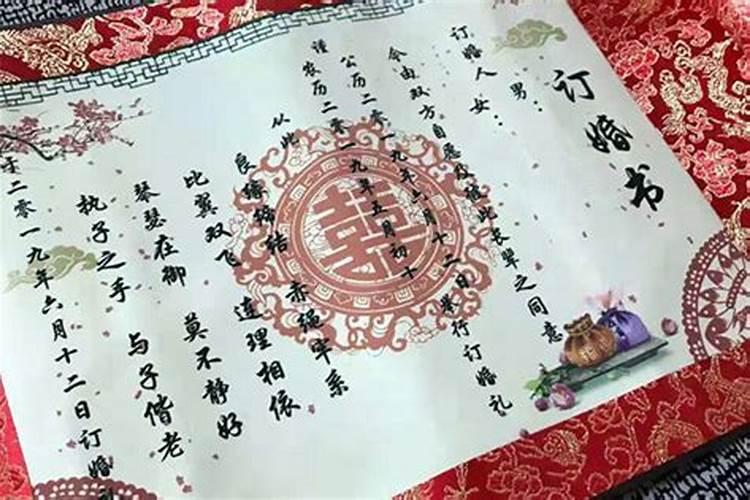 订婚书
男：
订婚人女：
今由双方自愿及此长辈之同意
谨
公历二零一九年六月十二日举行订婚礼
农历二零一九年五月初十
从此
良缘缔结 赤绳牢系
比翼双飞 连理相依
琴瑟在御 莫不静好
执子之手 与子偕老
于二零一九年六月十二日订婚